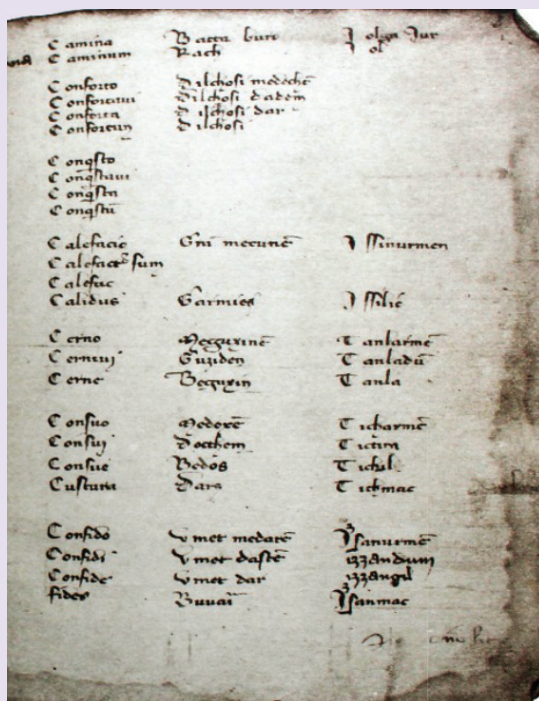 Camina Batta buro Jolga Jur
Caminum Rach Jol
Conforto Dilchosi medehē
Confortaui Dilchosi dadem
Conforta Dilchosi dar
Confortum Dilchosi
Conq̄sto
Conq̄staui
Conq̄sta
Conq̄stū
Calefacio Grā mecunē Jssinurmen
Calefactꝰ sum
Calefac
Calidus Garmies Jssilic
Cerno Meguxinē Tanlarmē
Cerniui Guxiden Tanladū
Cerne Beguxin Tanla
Consuo Medoxē Ticharmē
Consuj Docthem
Consue Bedos Tichil
Custura Dars Tichmac
Confido Vmet medarē Jsanurmē
Confidi Vmet dastē izzandum
Confide Vmet dar izzangil
fides Buuar Jsanmac